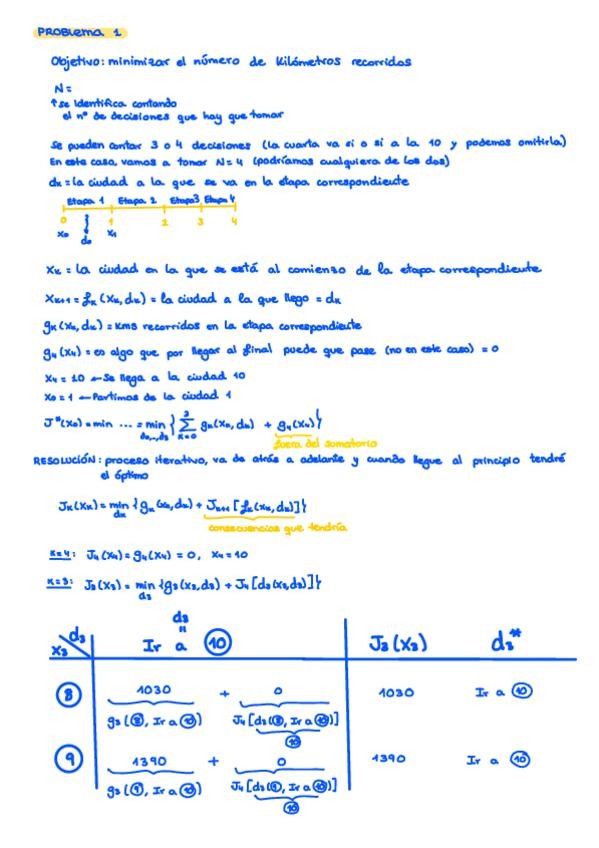 PROBLEMA 1
Objetivo: minimizar el número de kilómetros recorridos
N=
↑ se identifica contando
el nº de decisiones que hay que tomar
Se pueden contar 3 o 4 decisiones (la cuarta va si o si a la 10 y podemos omitirla)
En este caso, vamos a tomar N=4 (podríamos cualquiera de los dos)
dₖ = la ciudad a la que se va en la etapa correspondiente
Etapa 1 Etapa 2 Etapa 3 Etapa 4
0 1 2 3 4
x₀ d₀ x₁
Xₖ = la ciudad en la que se está al comienzo de la etapa correspondiente
Xₖ₊₁ = fₖ(Xₖ,dₖ) = la ciudad a la que llego = dₖ
gₖ(Xₖ,dₖ) = kms recorridos en la etapa correspondiente
g₄(X₄) = es algo que por llegar al final puede que pase (no en este caso) = 0
X₄ = 10 ← Se llega a la ciudad 10
X₀ = 1 ← Partimos de la ciudad 1
J*(X₀) = min ... = min {Σ gₖ(Xₖ,dₖ) + g₄(X₄)}
d₀,...,d₃ k=0 3
fuera del sumatorio
RESOLUCIÓN: proceso iterativo, va de atrás a adelante y cuando llegue al principio tendré
el óptimo
Jₖ(Xₖ) = min {gₖ(Xₖ,dₖ) + Jₖ₊₁[fₖ(Xₖ,dₖ)]}
dₖ
consecuencias que tendría
k=4: J₄(X₄) = g₄(X₄) = 0, X₄=10
k=3: J₃(X₃) = min {g₃(X₃,d₃) + J₄[d₃(X₃,d₃)]}
d₃
d₃
"
X₃ d₃ Ir a 10 J₃(X₃) d₃*
8 1030 + 0 1030 Ir a 10
g₃(8, Ir a 10) J₄[d₃(8, Ir a 10)]
10
9 1390 + 0 1390 Ir a 10
g₃(9, Ir a 10) J₄[d₃(9, Ir a 10)]
10